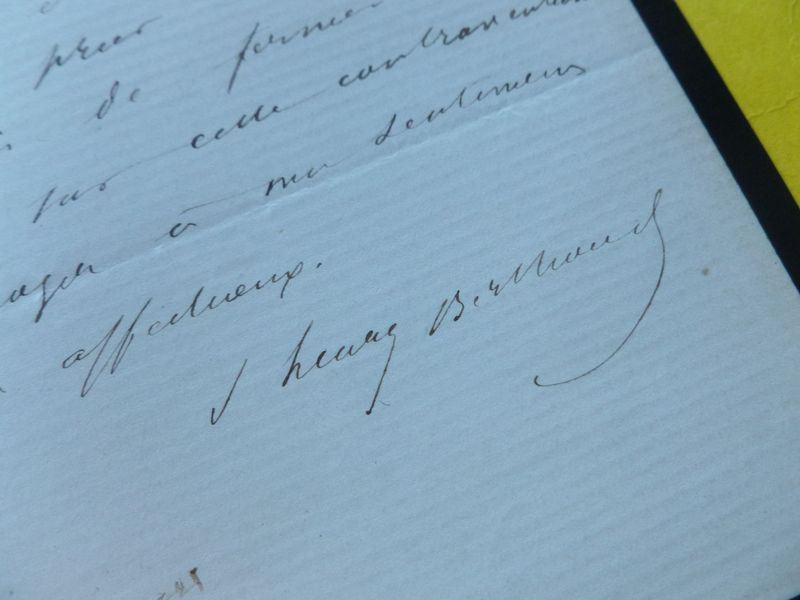 prier
de fermer
sur cette contravention
à mes sentimens
affectueux.
S henry Berthoud